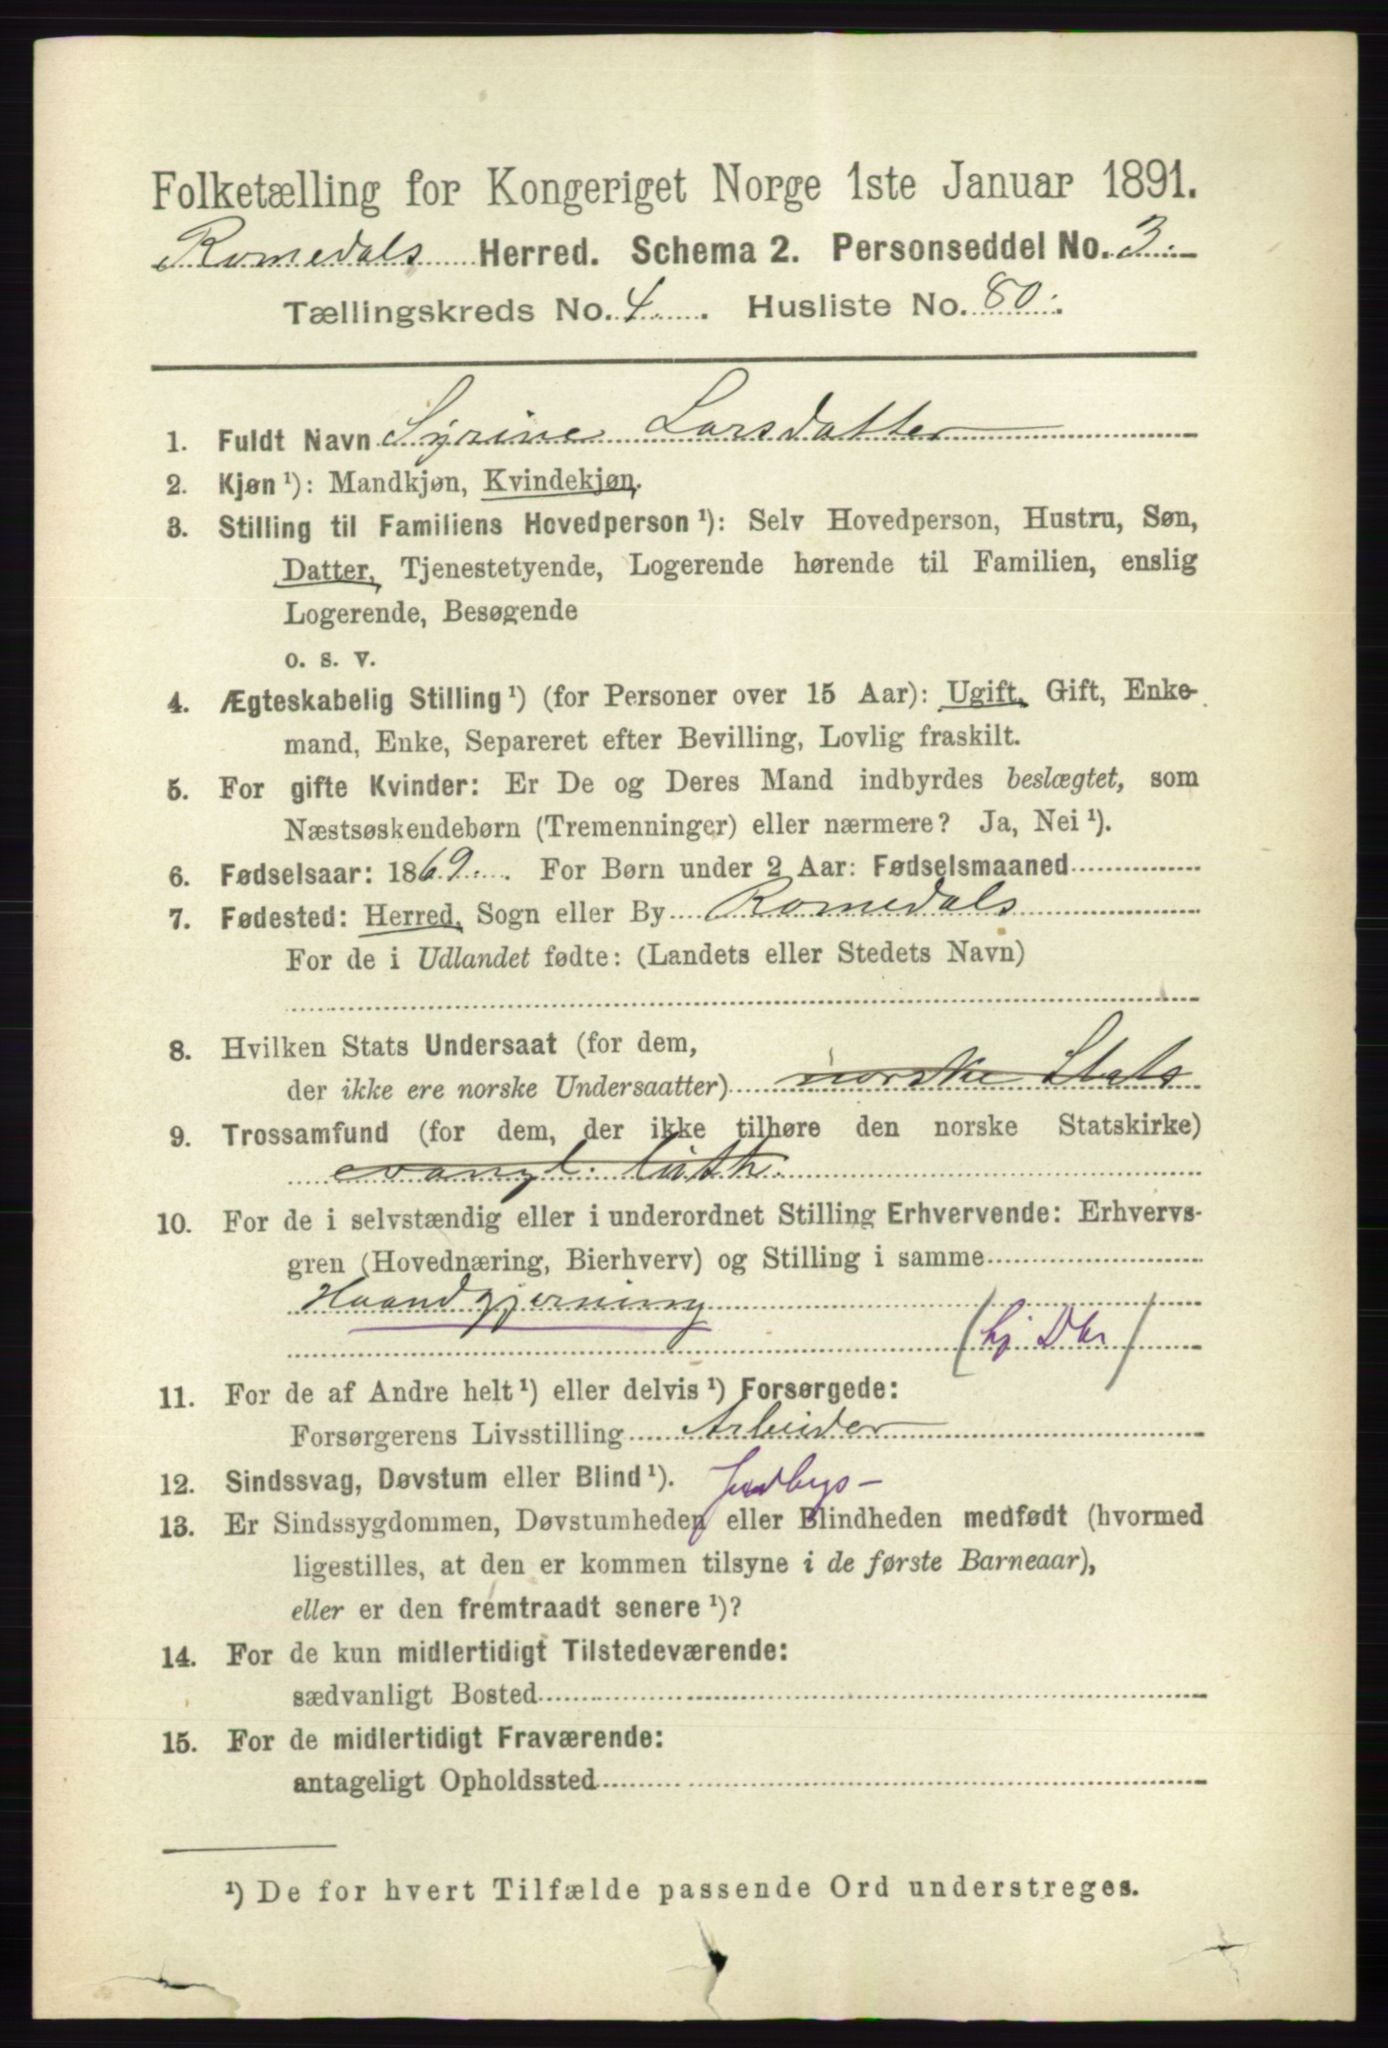 Folketælling for Kongeriget Norge 1ste Januar 1891.
Romedals Herred. Schema 2. Personseddel No. 3.
Tællingskreds No. 4. Husliste No. 80.
1. Fuldt Navn Syrine Larsdatter
2. Kjøn¹): Mandkjøn, Kvindekjøn.
3. Stilling til Familiens Hovedperson¹): Selv Hovedperson, Hustru, Søn,
Datter, Tjenestetyende, Logerende hørende til Familien, enslig
Logerende, Besøgende
o. s. v.
4. Ægteskabelig Stilling¹) (for Personer over 15 Aar): Ugift, Gift, Enke-
mand, Enke, Separeret efter Bevilling, Lovlig fraskilt.
5. For gifte Kvinder: Er De og Deres Mand indbyrdes beslægtet, som
Næstsøskendebørn (Tremenninger) eller nærmere? Ja, Nei¹).
6. Fødselsaar: 1869. For Børn under 2 Aar: Fødselsmaaned
7. Fødested: Herred, Sogn eller By Romedals
For de i Udlandet fødte: (Landets eller Stedets Navn)
8. Hvilken Stats Undersaat (for dem,
der ikke ere norske Undersaatter) norske Stats
9. Trossamfund (for dem, der ikke tilhøre den norske Statskirke)
evangl. luth.
10. For de i selvstændig eller i underordnet Stilling Erhvervende: Erhvervs-
gren (Hovednæring, Bierhverv) og Stilling i samme
Haandgjerning
(hj Dtr)
11. For de af Andre helt¹) eller delvis¹) Forsørgede:
Forsørgerens Livsstilling Arbeider
12. Sindssvag, Døvstum eller Blind¹).
13. Er Sindssygdommen, Døvstumheden eller Blindheden medfødt (hvormed
ligestilles, at den er kommen tilsyne i de første Barneaar),
eller er den fremtraadt senere¹)?
14. For de kun midlertidigt Tilstedeværende:
sædvanligt Bosted
15. For de midlertidigt Fraværende:
antageligt Opholdssted
¹) De for hvert Tilfælde passende Ord understreges.